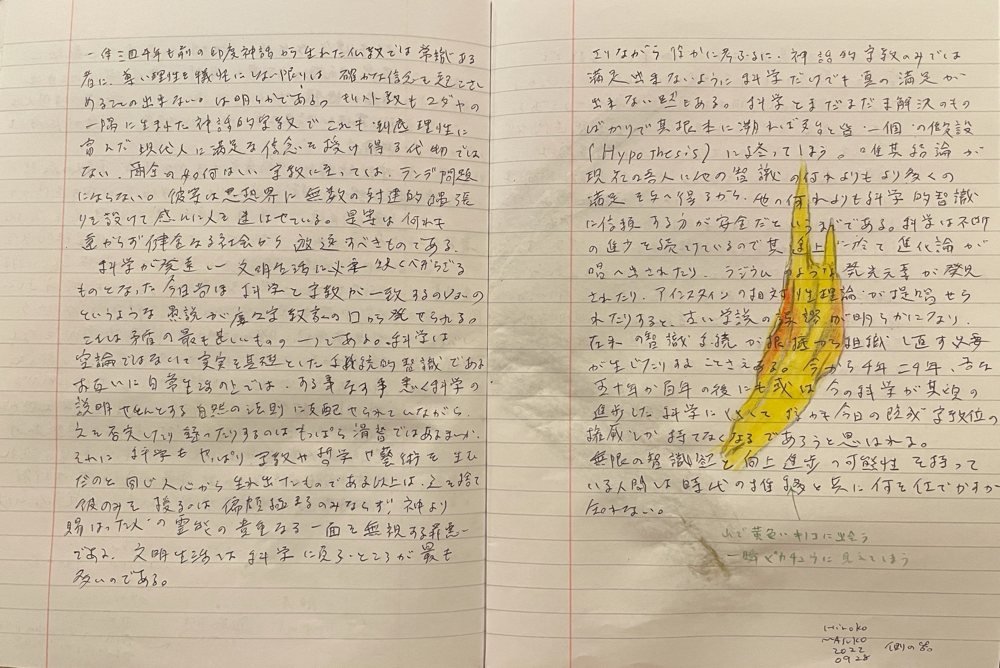 一体三四千年も前の印度神話から生れた仏教では常識ある
者に、尊い理性を犠牲にしない限りは、確かな信念を起こさし
めることの出来ない。は明らかである。キリスト教もユダヤの
一隅に生れた神話的宗教でこれも
富んだ現代人に満足な信念を授け得る代物では
ない。両金の如何はい 宗教に至っては、テンデ問題
にならない。彼等は思想界に無数の封建的縄張
りを設けて感に人を迷はせている。是等は何れも
遠からず健全なる社会から放逐すべきものである。
科学が発達し文明生活に 欠くべからざる
ものとなった今日尚ほ科学と宗教が一致するの
というような愚説が 宗教家の口から発せられる。
これは矛盾の最も甚しいもの一つである。科学は
空論ではないて事実を基礎とした系統的智識である
お互いに日常生活の上では、する事なす事悉く科学の
説明せんとする自然の法則に支配せられていながら、
之を否定したり 罵ったりするのはもっぱら滑稽ではあるまいか。
それに科学もやっぱり宗教や哲学や藝術を生ん
だのと同じ人心から生れ出たものである以上は、之を捨て
彼のみを援るは偏頗極まるのみならず、神より
賜はった人の霊能の貴重なる一面を無視する罪悪
である。文明生活は科学に負ふところが最も
多いのである。
乍りながら 静かに考ふるに、神話的宗教のみでは
満足出来ないように科学だけでも真の満足が
出来ない もある。科学とまだまだ未解決のもの
ばかりで其根本に溯れば 皆一個の仮設
(Hypothesis) に終ってしまう。唯其結論が
現在の吾人に他の智識の何れよりもより多くの
満足を与へ得るから、他の何れよりも科学的智識
に信頼する方が安全だというまでである。科学は不断
の進歩を続けているので其途上に於て進化論が
唱へ出されたり、ラジウムのような発光元素が発見
されたり、アインスタインの相対性理論が提唱せら
れたりすると、古い学説の誤謬が明らかになり、
在来の智識系統が根底から組織し直す必要
が生じたりすることさえある。今から千年二千年、否な
五十年か百年の後にも或は今の科学が其後の
進歩した科学にくらべて 恰かも今日の既成宗教位の
権威しか持てなくなるであろうと思はれる。
無限の智識慾と向上進歩の可能性を持って
いる人間は時代の推移と共に何を仕でかすか
知れない。
山で黄色いキノコに出会う
一瞬ピカチュウに見えてしまう
Hiroko
~Aluko
2022
09 28